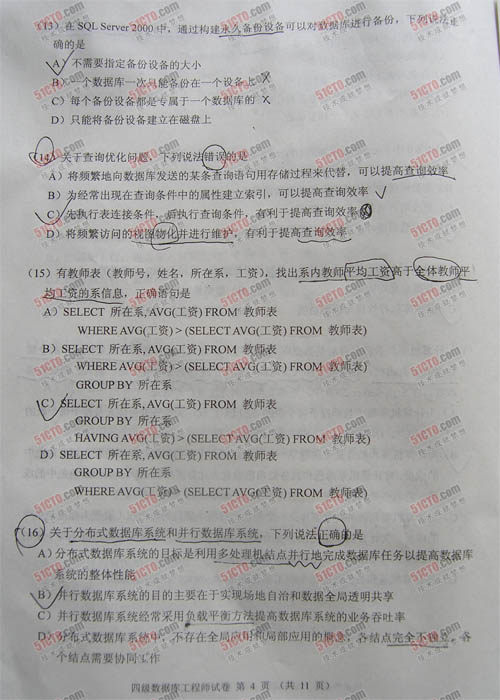 (13) 在 SQL Server 2000 中，通过构建永久备份设备可以对数据库进行备份，下列说法正
确的是
A) 不需要指定备份设备的大小
B) 一个数据库一次只能备份在一个设备上
C) 每个备份设备都是专属于一个数据库的
D) 只能将备份设备建立在磁盘上
(14) 关于查询优化问题，下列说法错误的是
A) 将频繁地向数据库发送的某条查询语句用存储过程来代替，可以提高查询效率
B) 为经常出现在查询条件中的属性建立索引，可以提高查询效率
C) 先执行表连接条件，后执行查询条件，有利于提高查询效率
D) 将频繁访问的视图物化并进行维护，有利于提高查询效率
(15) 有教师表（教师号，姓名，所在系，工资），找出系内教师平均工资高于全体教师平
均工资的系信息，正确语句是
A) SELECT 所在系, AVG(工资) FROM 教师表
WHERE AVG(工资) > (SELECT AVG(工资) FROM 教师表)
B) SELECT 所在系, AVG(工资) FROM 教师表
WHERE AVG(工资) > (SELECT AVG(工资) FROM 教师表)
GROUP BY 所在系
C) SELECT 所在系, AVG(工资) FROM 教师表
GROUP BY 所在系
HAVING AVG(工资) > (SELECT AVG(工资) FROM 教师表)
D) SELECT 所在系, AVG(工资) FROM 教师表
GROUP BY 所在系
WHERE AVG(工资) > (SELECT AVG(工资) FROM 教师表)
(16) 关于分布式数据库系统和并行数据库系统，下列说法正确的是
A) 分布式数据库系统的目标是利用多处理机结点并行地完成数据库任务以提高数据库
系统的整体性能
B) 并行数据库系统的目的主要在于实现场地自治和数据全局透明共享
C) 并行数据库系统经常采用负载平衡方法提高数据库系统的业务吞吐率
D) 分布式数据库系统中，不存在全局应用和局部应用的概念，各结点完全不独立，各
个结点需要协同工作
四级数据库工程师试卷 第 4 页 （共 11 页）